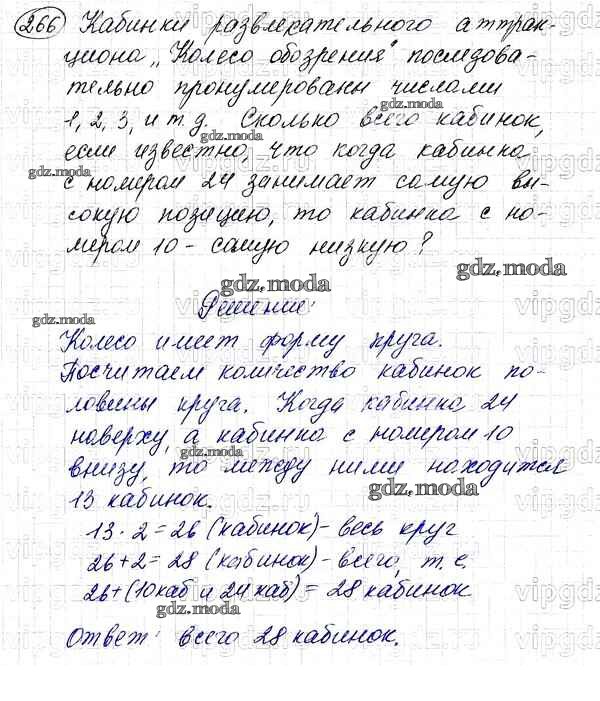 266 Кабинки развлекательного аттрак-
циона „Колесо обозрения" последова-
тельно пронумерованы числами
1, 2, 3, и т.д. Сколько всего кабинок,
если известно, что когда кабинка
с номером 24 занимает самую вы-
сокую позицию, то кабинка с но-
мером 10 - самую низкую?
Решение:
Колесо имеет форму круга.
Посчитаем количество кабинок по-
ловины круга. Когда кабинка 24
наверху, а кабинка с номером 10
внизу, то между ними находится
13 кабинок.
13 · 2 = 26 (кабинок) - весь круг
26 + 2 = 28 (кабинок) - всего, т. е.
26 + (10 каб и 24 каб) = 28 кабинок
Ответ: всего 28 кабинок.
gdz.moda
gdz.moda
gdz.moda
gdz.moda
gdz.moda
gdz.moda
gdz.moda
gdz.moda
gdz.moda
vipgdz
vipgdz
vipgdz
vipgdz